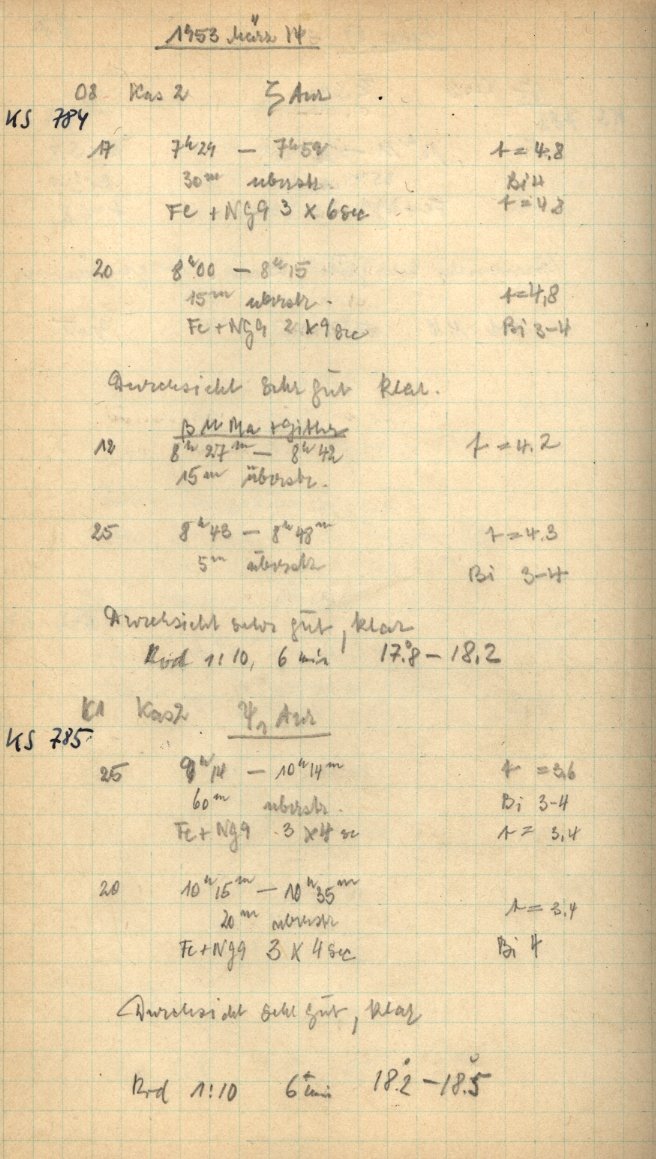 1953 März 14
08 Kas 2 ζ Aur
KS 784
17 7ʰ29 — 7ʰ59 t = 4.8
30ᵐ überstr. Bi 4
Fe + Ng9 3 x 6 sec t = 4.8
20 8ʰ00 — 8ʰ15
15ᵐ überstr. t = 4,8
Fe + Ng9 2 x 9 sec Bi 3-4
Durchsicht sehr gut klar.
B M Ma + Gitter
12 8ʰ27ᵐ — 8ʰ42 t = 4.2
15ᵐ überstr.
25 8ʰ43 — 8ʰ48ᵐ t = 4.3
5ᵐ überstr. Bi 3-4
Durchsicht sehr gut, klar
Rod 1:10, 6 min 17.°8 – 18,2
K1 Kas2 Aur
KS 785
25 9ʰ14 — 10ʰ14ᵐ t = 3,6
60ᵐ überstr. Bi 3-4
Fe + Ng9 3 x 4 sec t = 3,4
20 10ʰ15ᵐ — 10ʰ35ᵐ
20ᵐ überstr t = 3,4
Fe + Ng9 3 x 4 sec Bi 4
Durchsicht sehr gut, klar
Rod 1:10 6 min 18.°2 – 18.°5